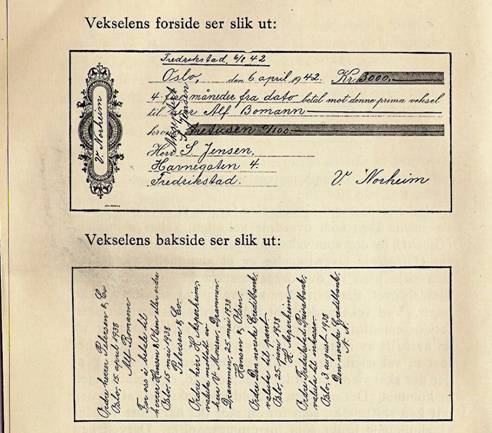 Vekselens forside ser slik ut:
V. Norheim
Fredrikstad, 6/8 42
Oslo, den 6 april 1942. Kr. 3000,-
4 fire måneder fra dato betal mot denne prima veksel
til Alf Bomann
kroner tretusen 0/100
Herr S. Jensen,
Havnegaten 4.
Fredrikstad.
V. Norheim
S. Jensen
Vekselens bakside ser slik ut:
Ordre herrer Petersen & Co
Oslo, 15 april 1938
Alf Bomann
For oss å betale til
herrer Hansen & Olsen eller ordre
Oslo, 15 mai 1938
Petersen & Co.
Ordre herr H. Asperheim,
verdien mottatt av
herr V. Monsen, Drammen
Drammen, 25 mai 1938
Hansen & Olsen
Ordre Den norske Creditbank,
verdien til
Oslo, 25 1938
H. Asperheim
Ordre Fredrikstad Privatbank,
verdien til inkasso.
Oslo, 3 august 1938
Den norske Creditbank.